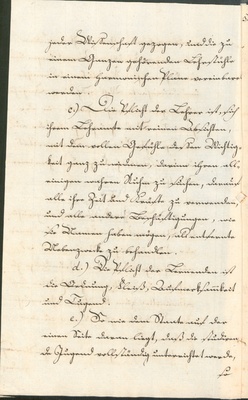 jeder Wissenschaft gezogen, und die zu
einem Ganzen gehörenden Lehrstühle
in einen harmonischen Plane vereinbart
werden.
c.) Die Pflicht der Lehrer ist, sich
ihrem Lehramte mit reinen Absichten,
mit dem vollen Gefühle der Wichtig-
keit ganz zu widmen, darinn ihren all-
einigen wahren Ruhm zu suchen, darauf
alle ihre Zeit und Kräfte zu verwenden,
und alle andere Beschäftigungen, wie
sie Namen haben mögen, als entfernte
Nebenzwecke zu behandlen.
d.) Die Pflicht der Lernenden ist
die Ordnung, Fleiß, Aufmerksamkeit
und Tugend.
e.) So wie dem Staate auf der
einen Seite daran liegt, daß die studiren-
de Jugend vollständig unterrichtet werde,
so